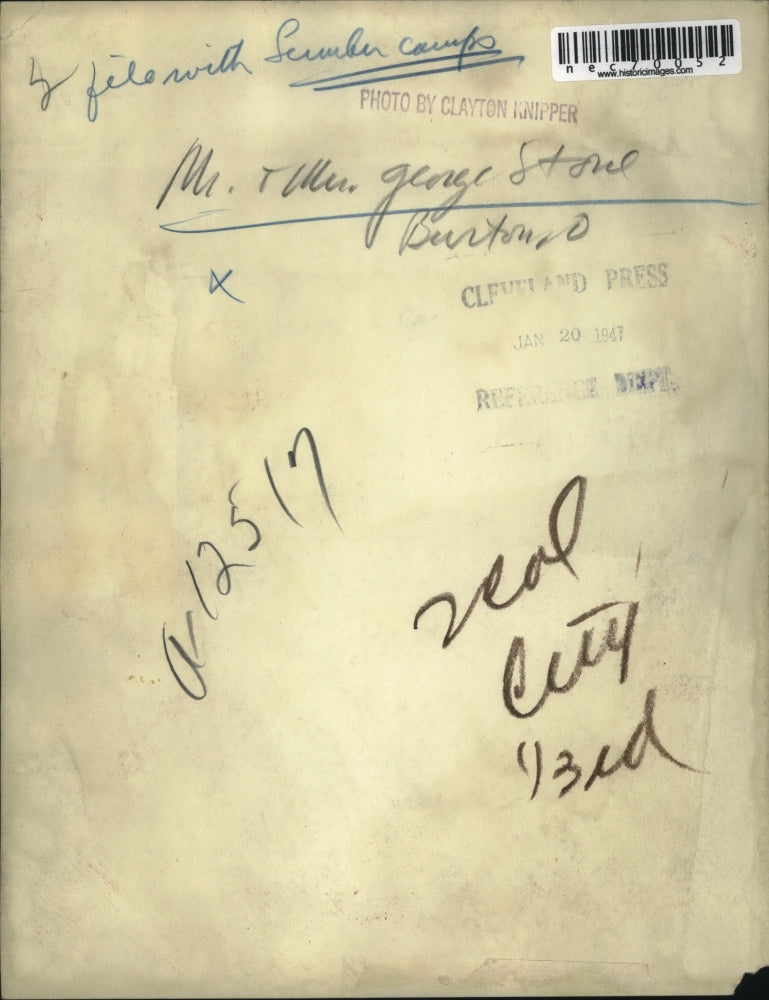 file with Lumber camps
nec70052
www.historicimages.com
PHOTO BY CLAYTON KNIPPER
Mr. + Mrs. George Stone
Burton, O
X
CLEVELAND PRESS
JAN 20 1947
REFERENCE DEPT.
a-12517
City